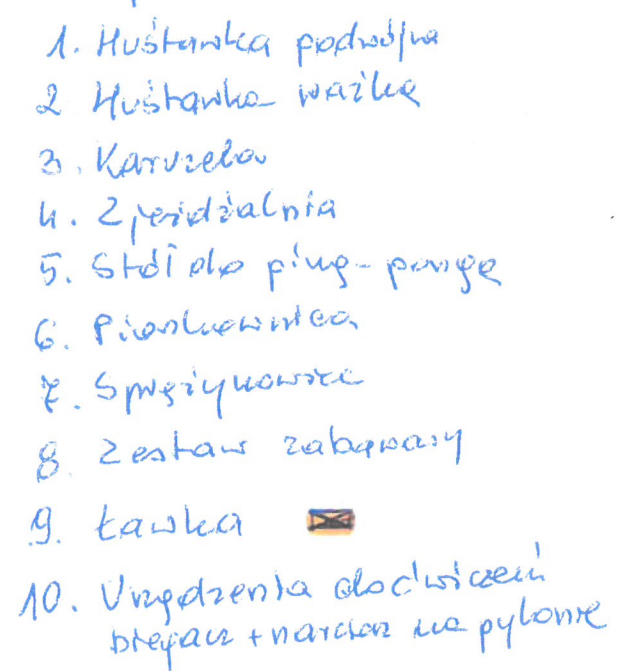 1. Huśtawka podwójna
2 Huśtawka ważka
3. Karuzela
4. Zjeżdżalnia
5. Stół do ping-ponga
6. Piaskownica
7. Sprężynowiec
8. Zestaw zabawowy
9. Ławka
10. Urządzenia do ćwiczeń
biegacz + narciarz na pylonie